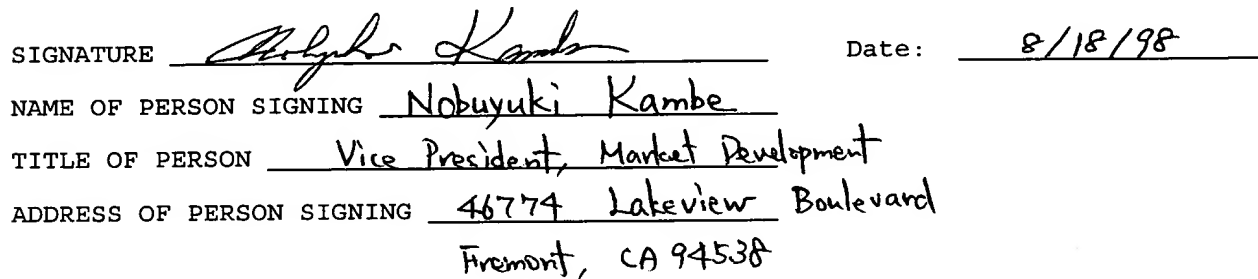 SIGNATURE Kambe Date: 8/18/98
NAME OF PERSON SIGNING Nobuyuki Kambe
TITLE OF PERSON Vice President, Market Development
ADDRESS OF PERSON SIGNING 46774 Lakeview Boulevard
Fremont, CA 94538